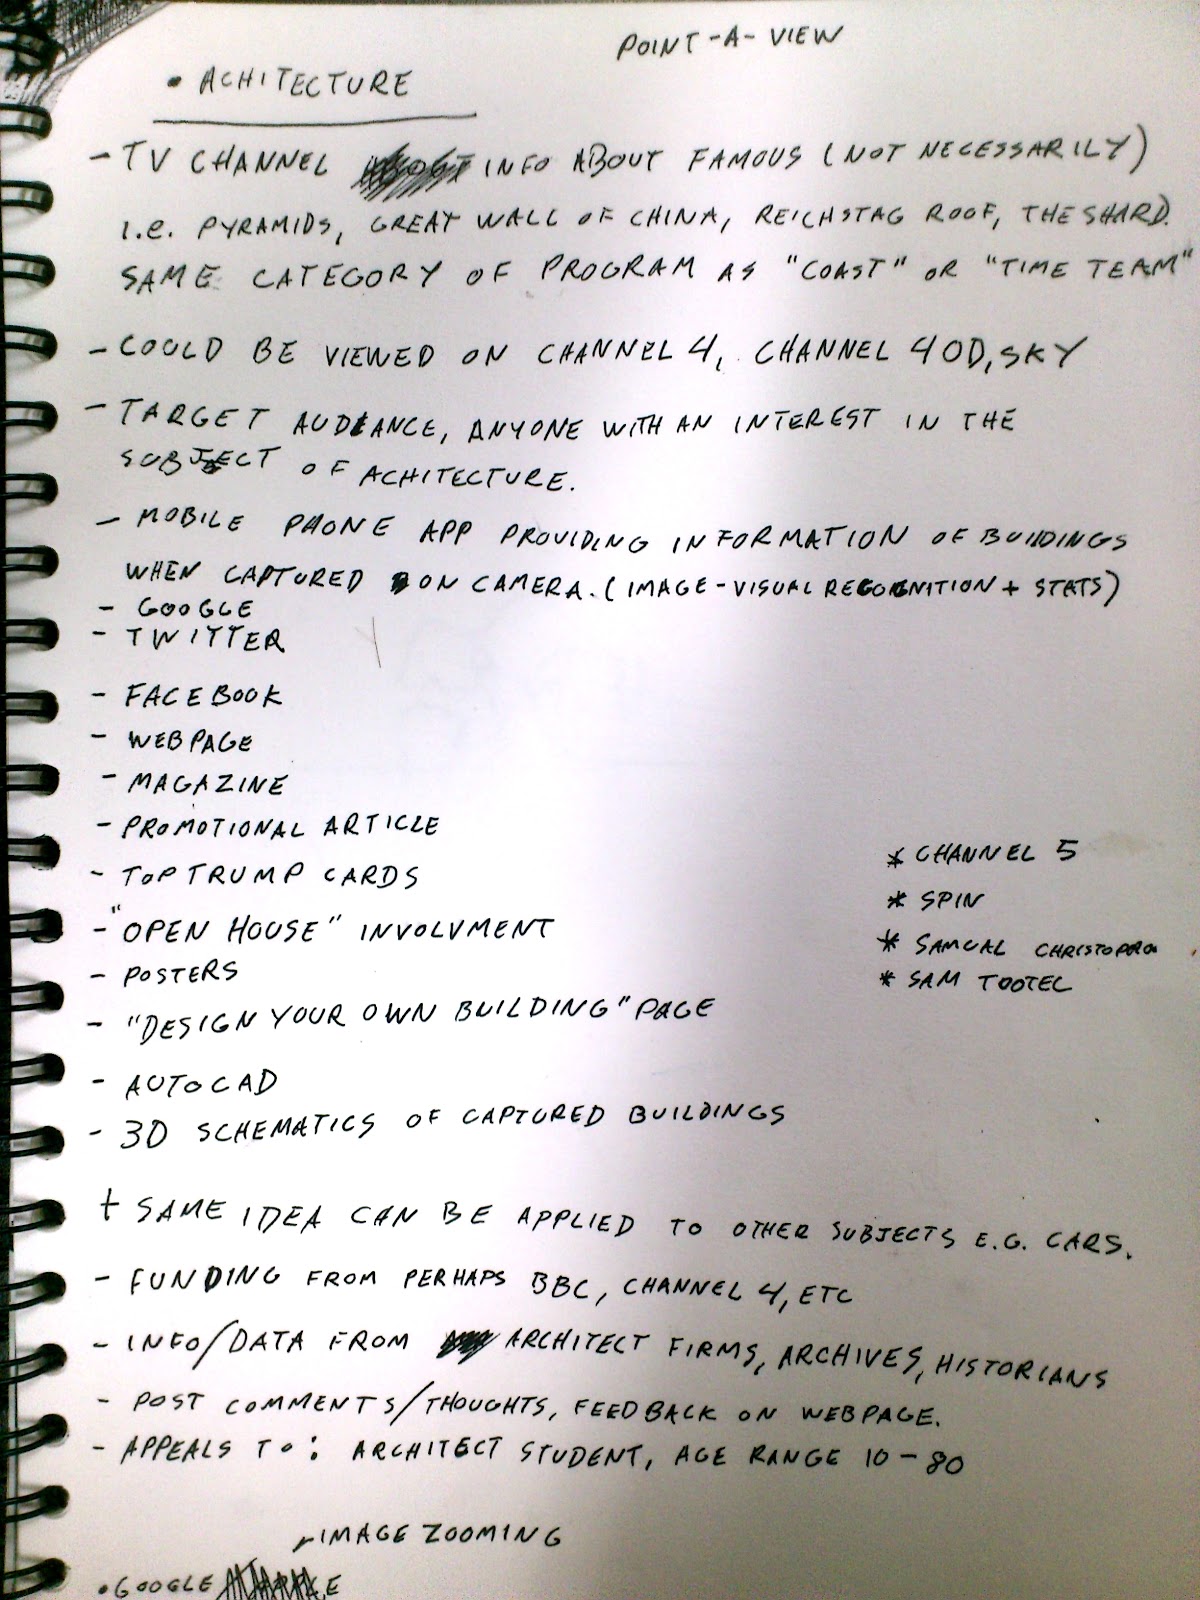 POINT-A-VIEW
• ACHITECTURE
- TV CHANNEL INFO ABOUT FAMOUS (NOT NECESSARILY)
i.e. PYRAMIDS, GREAT WALL OF CHINA, REICHSTAG ROOF, THE SHARD.
SAME CATEGORY OF PROGRAM AS "COAST" OR "TIME TEAM"
- COULD BE VIEWED ON CHANNEL 4, CHANNEL 4OD, SKY
- TARGET AUDIANCE, ANYONE WITH AN INTEREST IN THE
SUBJECT OF ACHITECTURE.
- MOBILE PHONE APP PROVIDING INFORMATION OF BUILDINGS
WHEN CAPTURED ON CAMERA. (IMAGE-VISUAL RECOGNITION + STATS)
- GOOGLE
- TWITTER
- FACEBOOK
- WEBPAGE
- MAGAZINE
- PROMOTIONAL ARTICLE
- TOP TRUMP CARDS
- "OPEN HOUSE" INVOLVMENT
- POSTERS
- "DESIGN YOUR OWN BUILDING" PAGE
- AUTOCAD
- 3D SCHEMATICS OF CAPTURED BUILDINGS
* CHANNEL 5
* SPIN
* SAMUAL
* SAM TOOTEL
+ SAME IDEA CAN BE APPLIED TO OTHER SUBJECTS E.G. CARS.
- FUNDING FROM PERHAPS BBC, CHANNEL 4, ETC
- INFO/DATA FROM ARCHITECT FIRMS, ARCHIVES, HISTORIANS
- POST COMMENTS/THOUGHTS, FEEDBACK ON WEBPAGE.
- APPEALS TO: ARCHITECT STUDENT, AGE RANGE 10-80
IMAGE ZOOMING
• GOOGLE